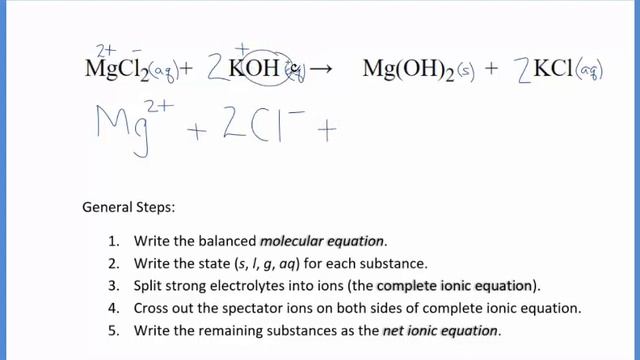 2+ − +
MgCl₂(aq) + 2 KOH (aq) → Mg(OH)₂(s) + 2 KCl(aq)
Mg²⁺ + 2Cl⁻ +
General Steps:
1. Write the balanced molecular equation.
2. Write the state (s, l, g, aq) for each substance.
3. Split strong electrolytes into ions (the complete ionic equation).
4. Cross out the spectator ions on both sides of complete ionic equation.
5. Write the remaining substances as the net ionic equation.